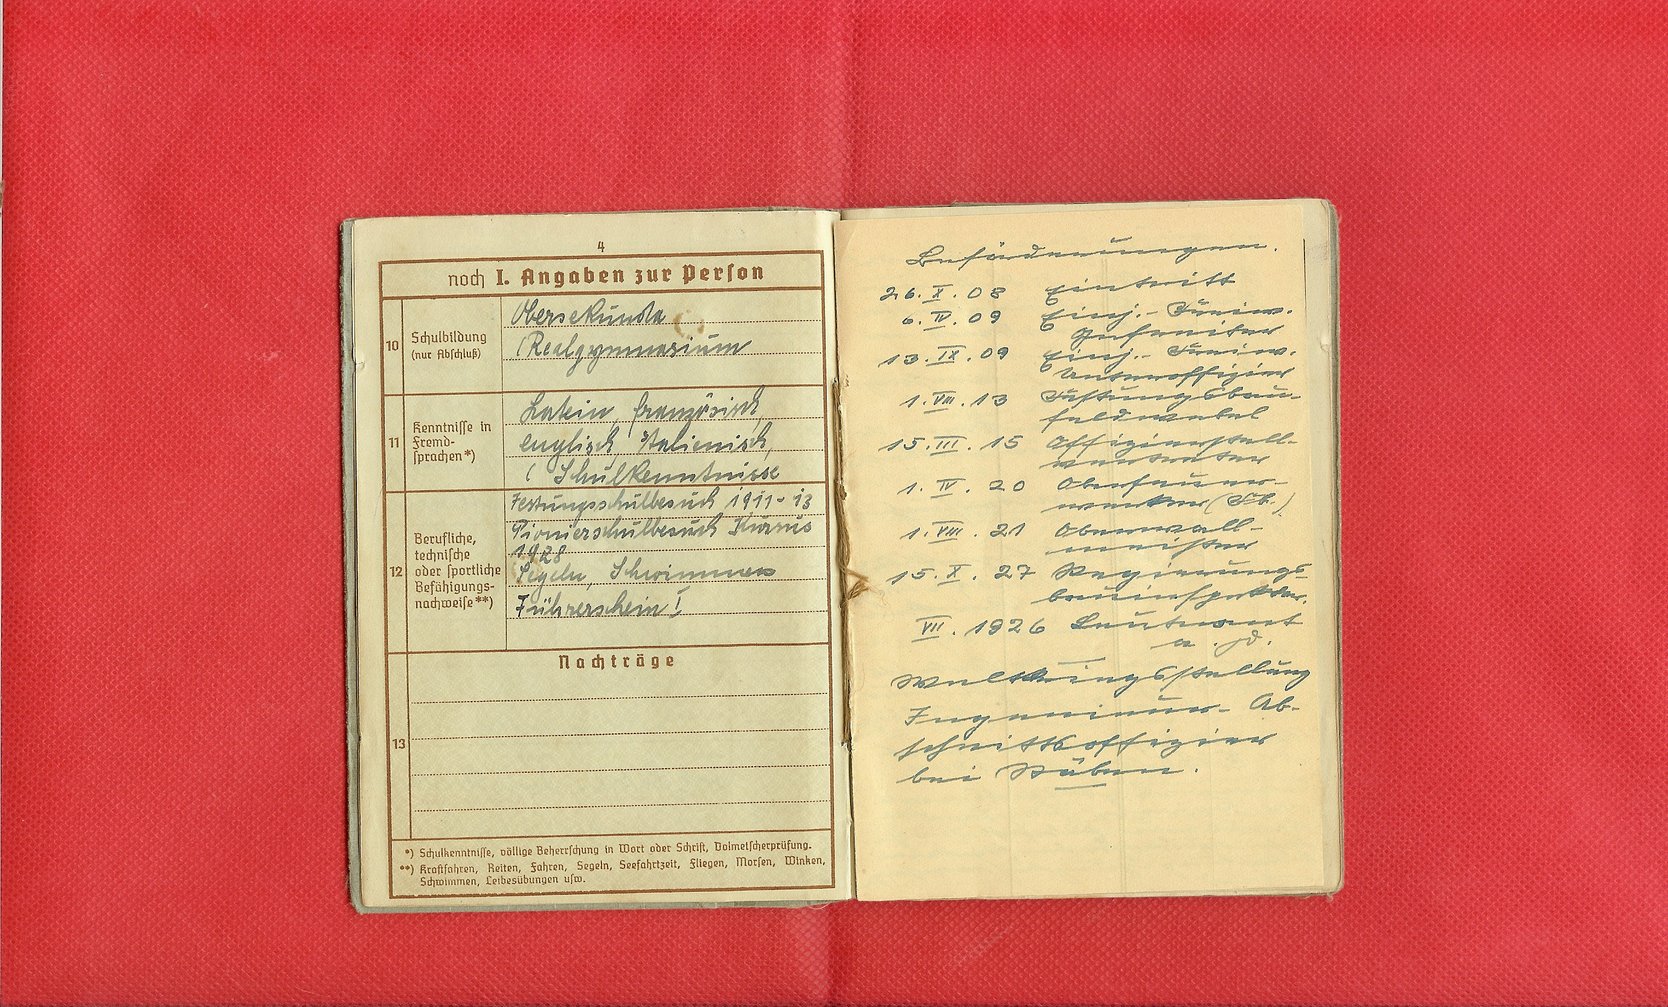 4
noch I. Angaben zur Person
10
Schulbildung
(nur Abschluß)
Obersekunda
(Realgymnasium
11
Kenntnisse in
Fremd-
sprachen*)
Latein, französisch,
englisch, Italienisch,
( Schulkenntnisse
12
Berufliche,
technische
oder sportliche
Befähigungs-
nachweise**)
Festungsschulbesuch 1911-13
Pionierschulbesuch Kursus
1928
Segeln, Schwimmen
Führerschein I
13
Nachträge
*) Schulkenntnisse, völlige Beherrschung in Wort oder Schrift, Dolmetscherprüfung.
**) Kraftfahren, Reiten, Fahren, Segeln, Seefahrtzeit, Fliegen, Morsen, Winken,
Schwimmen, Leibesübungen usw.
Beförderungen.
26. X. 08 Eintritt
6. IV. 09 Einj.-Freiw.
Gefreiter
13. IX. 09 Einj.-Freiw.
Unteroffizier
1. VIII. 13 Festungsbau-
feldwebel
15. III. 15 Offizierstell-
vertreter
1. IV. 20 Oberfeuer-
werker (Fb.)
1. VIII. 21 Oberwall-
meister
15. X. 27 Regierungs-
bauinspektor.
VII. 1926 Leutnant
a. D.
Weltkriegsstellung
Ingenieur- Ab-
schnittsoffizier
bei Stäben.